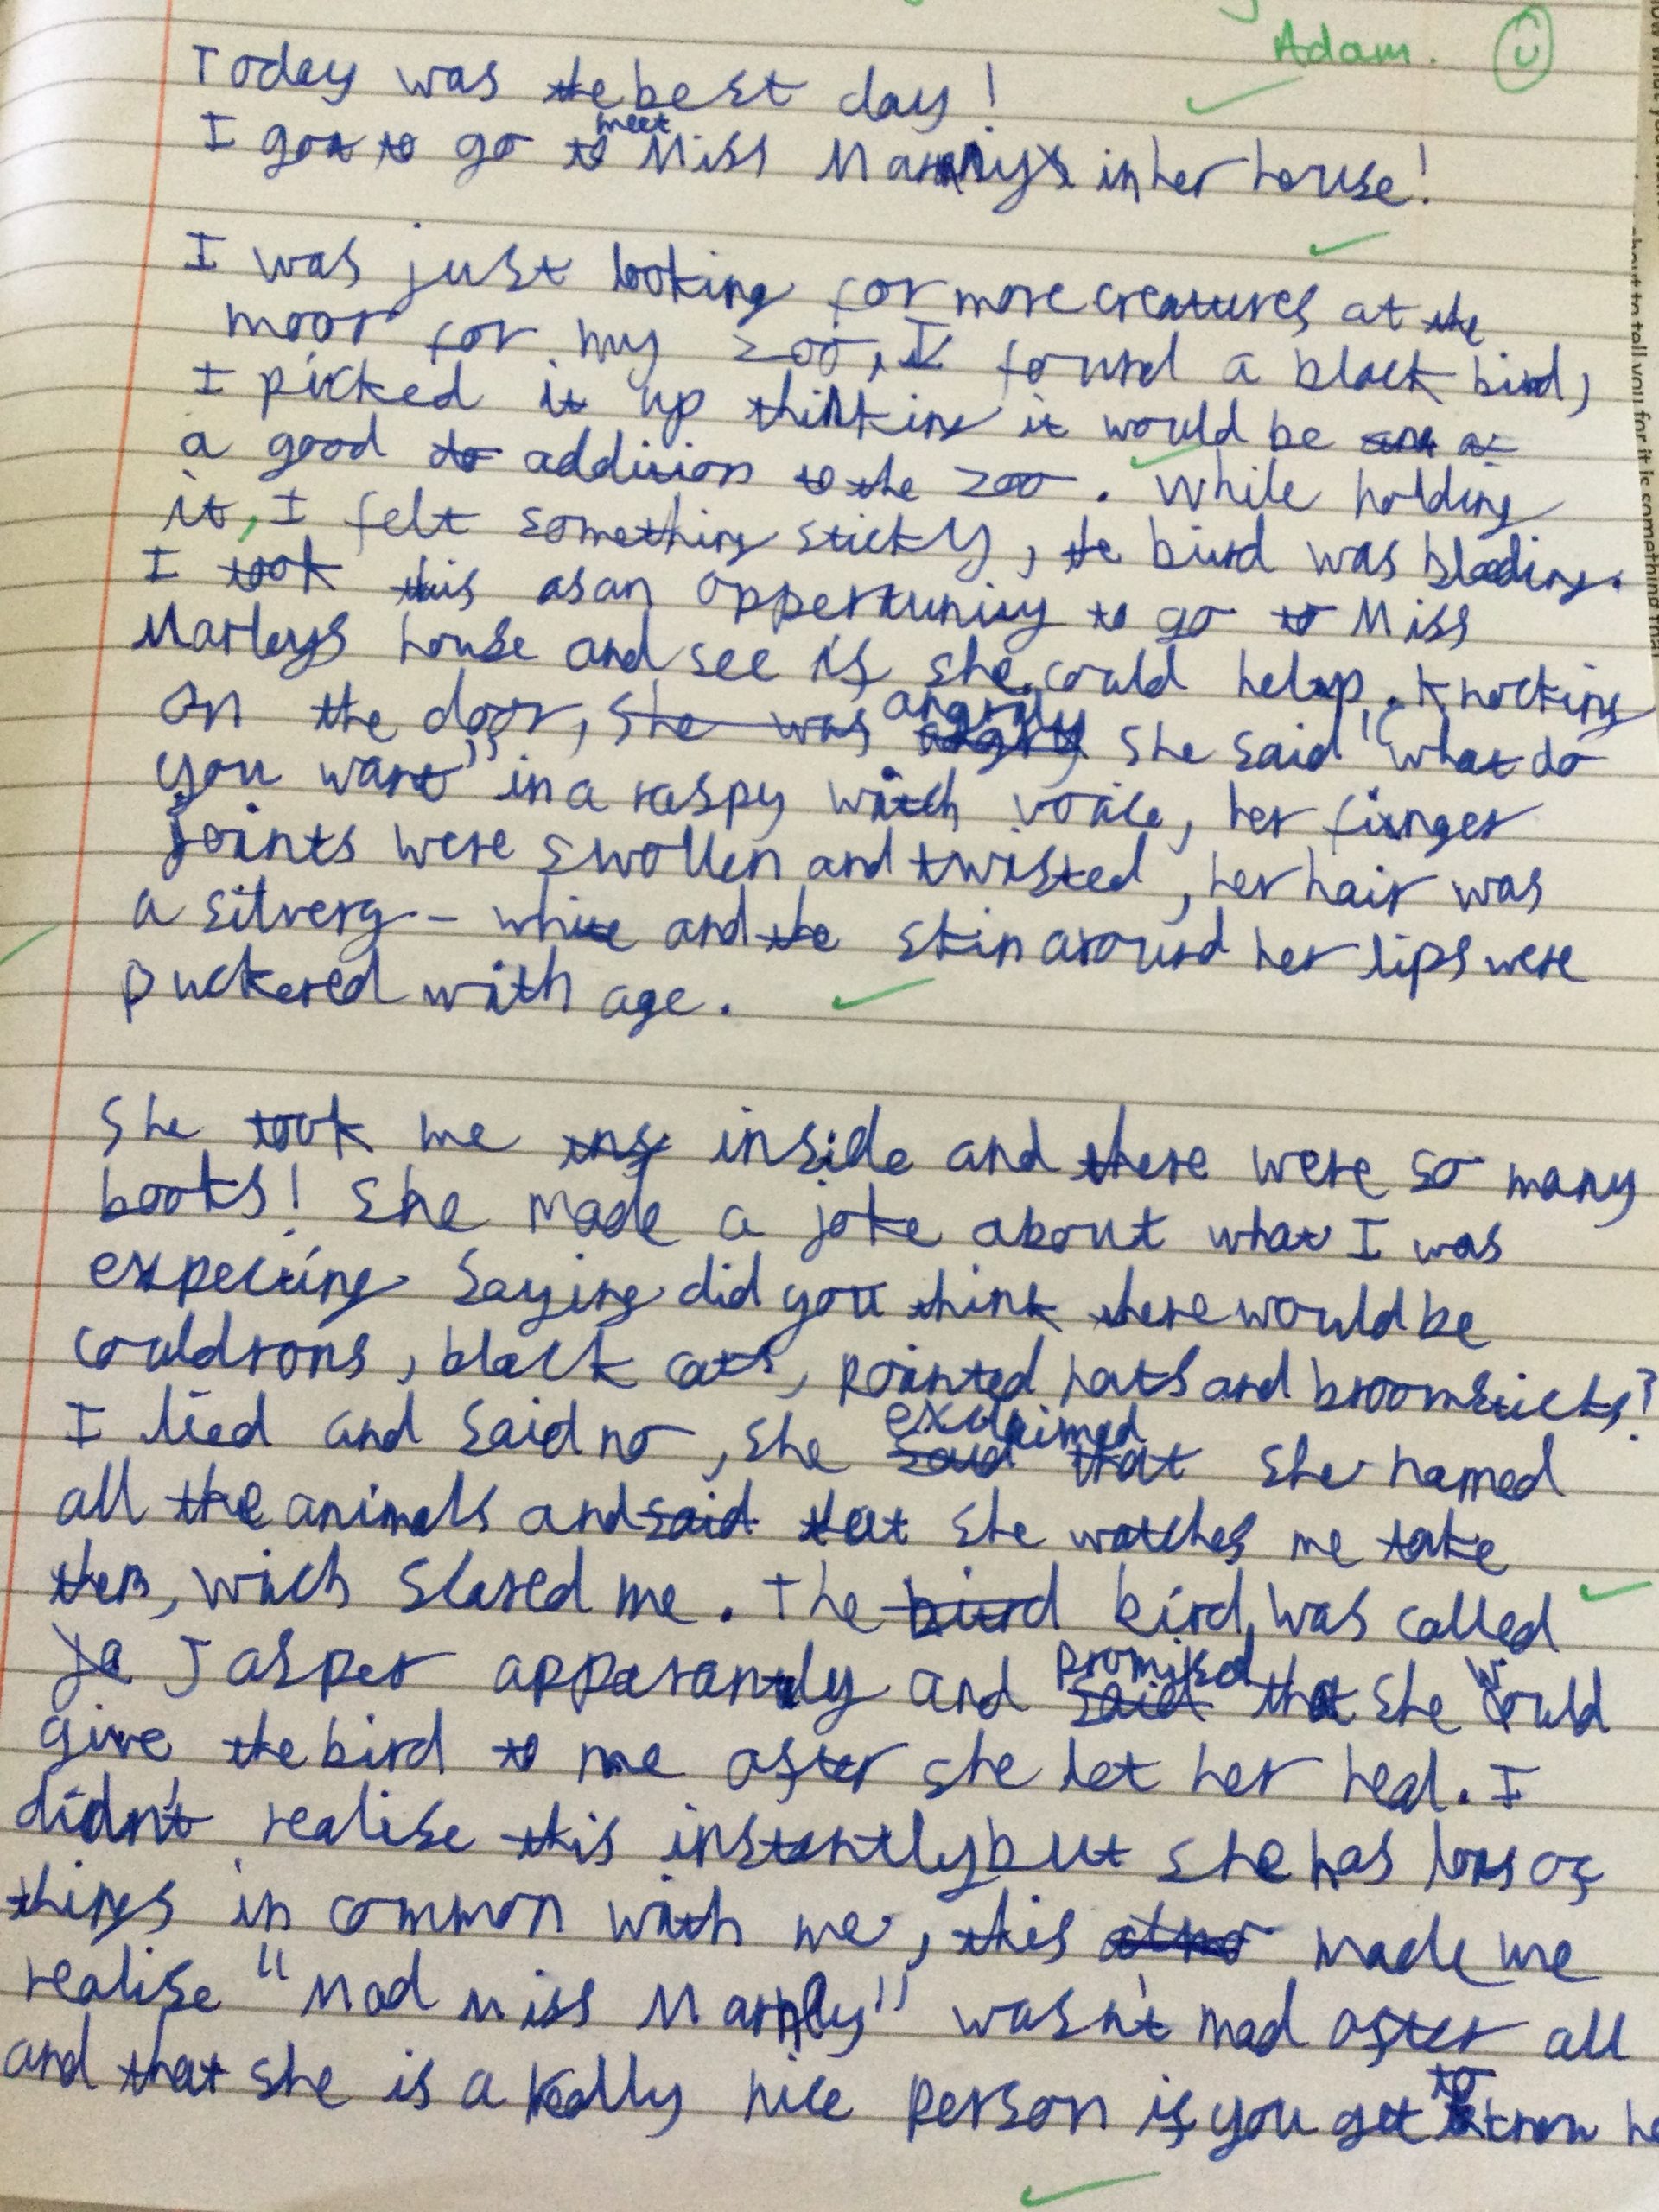 Adam.
Today was the best day!
I got to go to meet Miss Marnly in her house!
I was just looking for more creatures at the
moor for my zoo, I found a black bird,
I picked it up thinking it would be
a good addition to the zoo. While holding
it, I felt something sticky, the bird was bleeding.
I took this as an oppertunity to go to Miss
Marleys house and see if she could help. Knocking
on the door, she was angrily she said "what do
you want" in a raspy witch voice, her finger
joints were swollen and twisted, her hair was
a silvery - white and the skin around her lips were
puckered with age.
She took me ins inside and there were so many
books! She made a joke about what I was
expecting saying did you think there would be
couldrons, black cats, pointed hats and broomsticks?
I lied and said no, she said exclaimed that she named
all the animals and said that she watches me take
them, wich scared me. The bird bird was called
Ja Jasper apparantly and said promised that she would
give the bird to me after she let her heal. I
didn't realise this instantly but she has lots of
things in common with me, this also made me
realise "Mad Miss Marnly" wasn't mad after all
and that she is a really nice person if you get to know